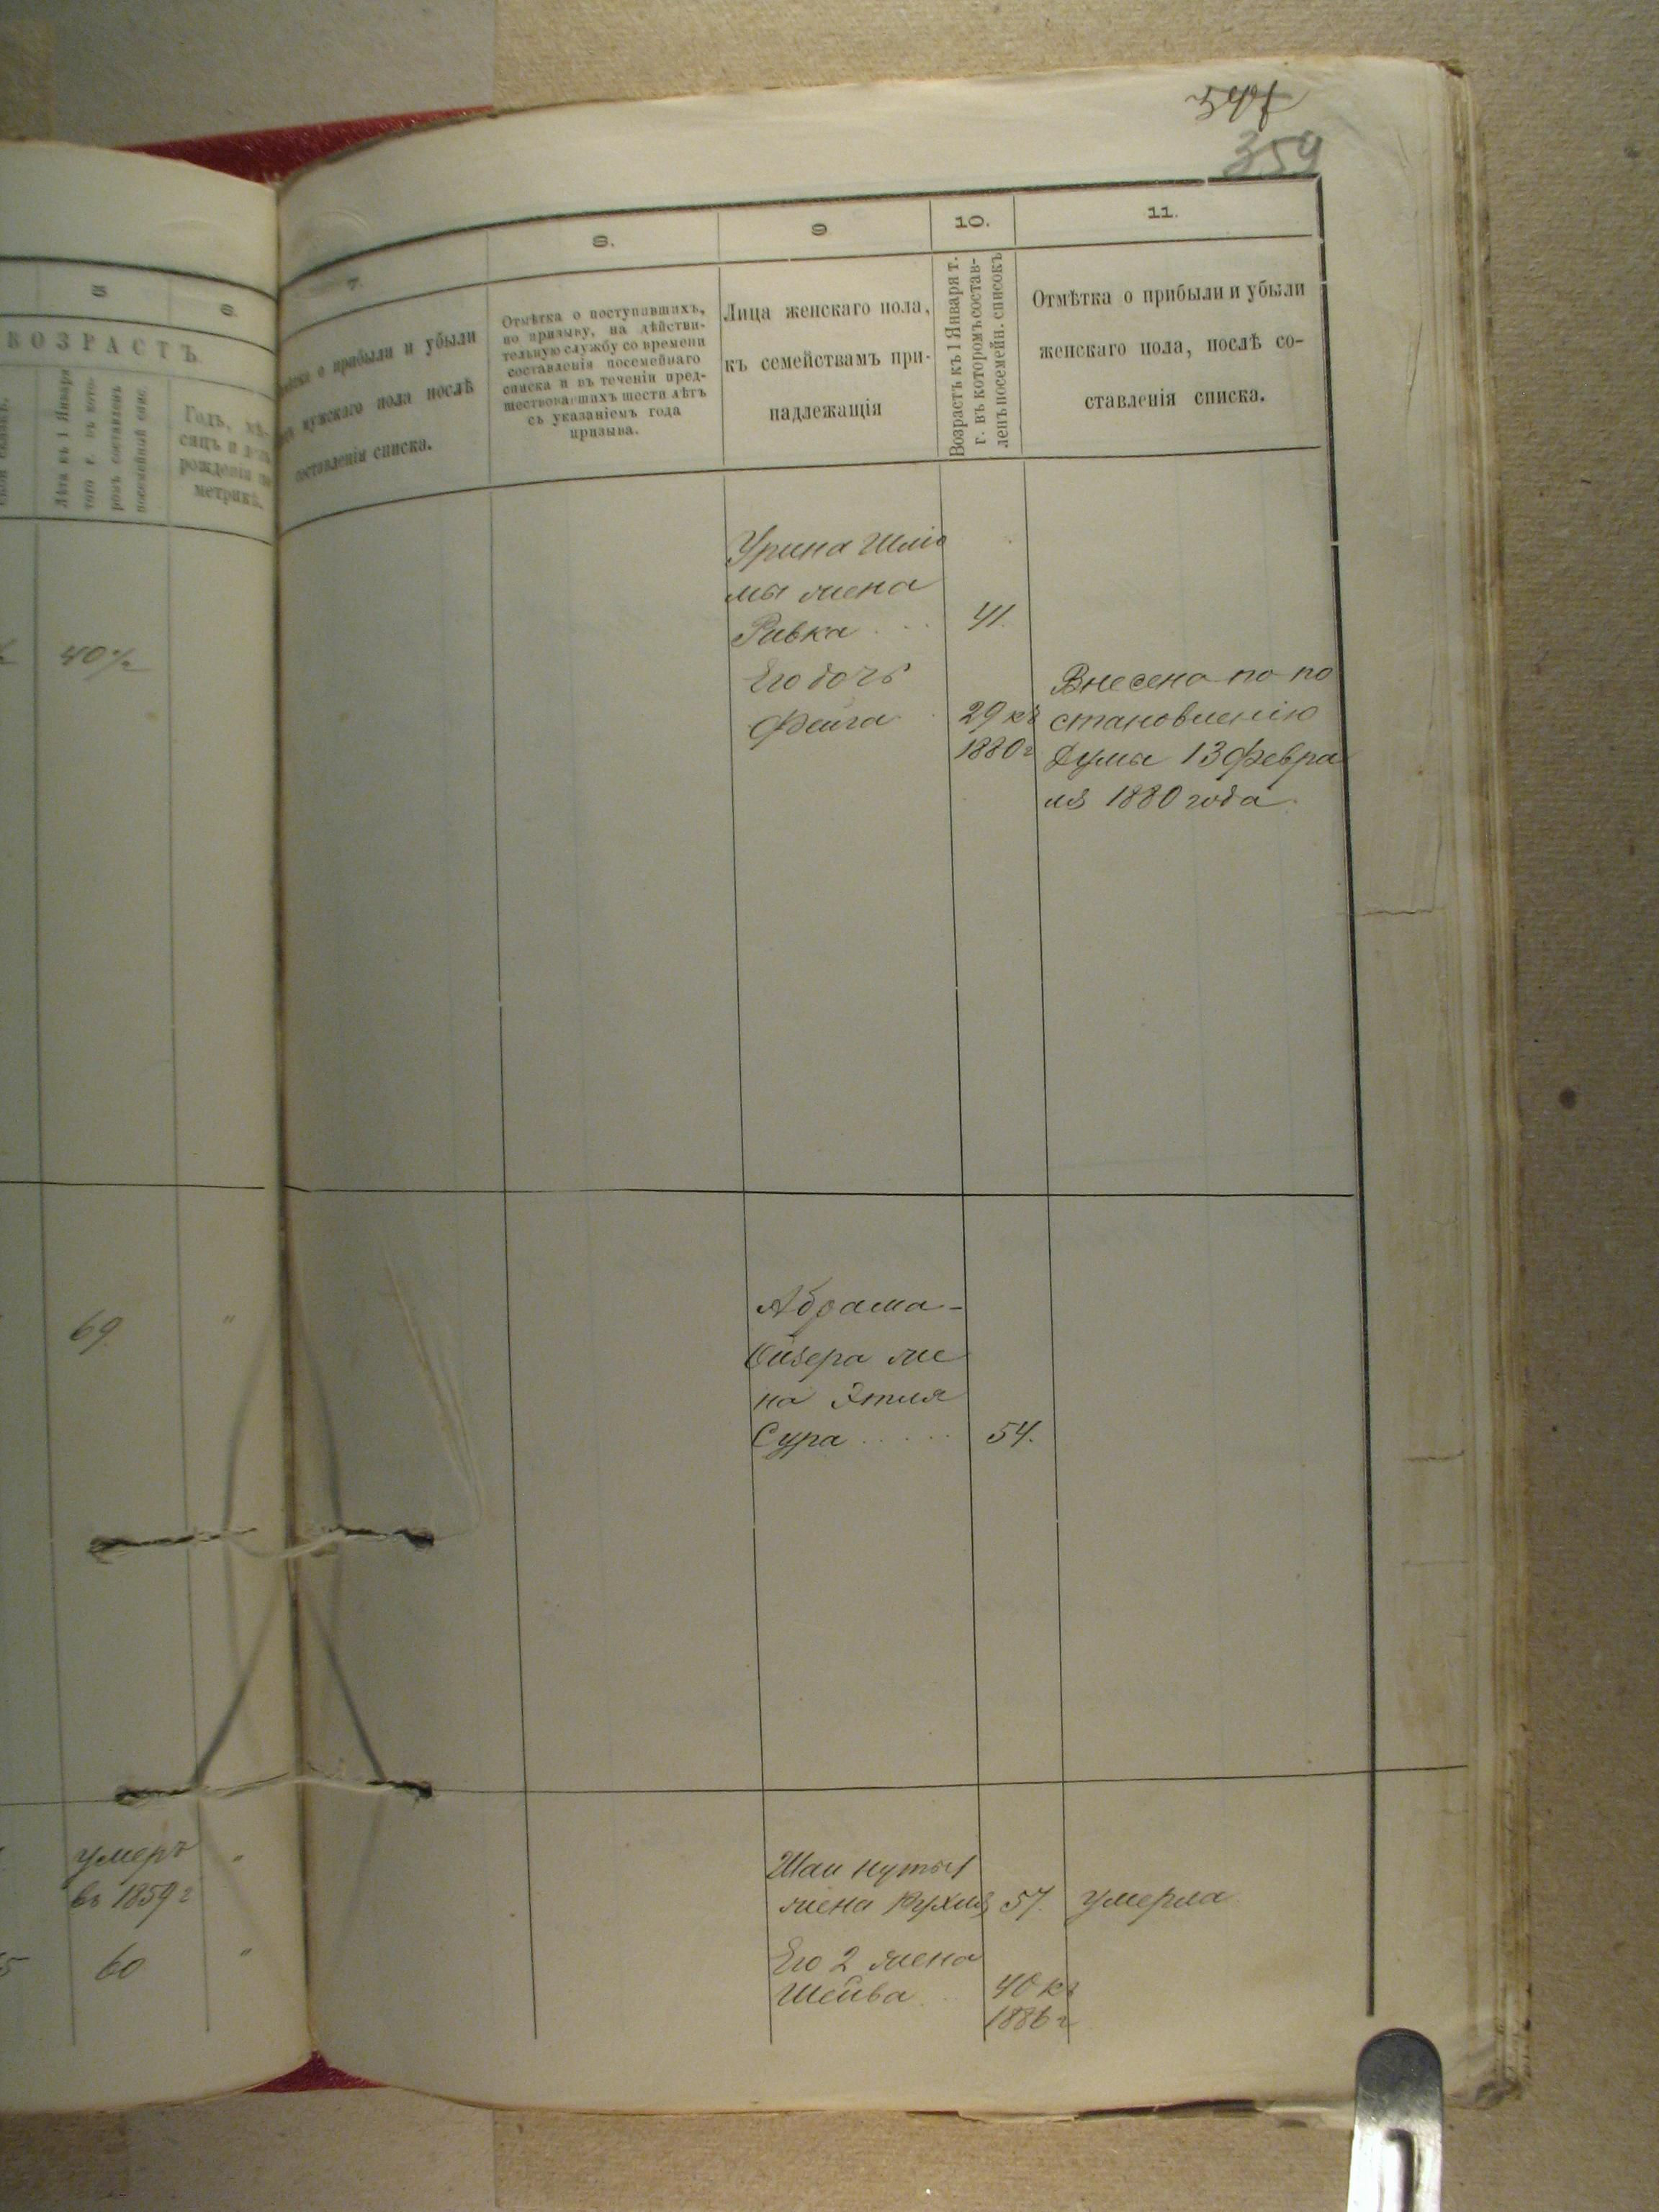 347
359
5
6
ВОЗРАСТЪ
Лѣта къ 1 Января
того г. въ кото-
ромъ составленъ
посемейный спис.
Годъ, мѣ-
сяцъ и день
рожденія по
метрикѣ.
40½
69
"
умеръ
въ 1859 г
"
60
"
7.
8.
9
10.
11.
о прибыли и убыли
мужскаго пола послѣ
составленія списка.
Отмѣтка о поступавшихъ,
по призыву, на дѣйстви-
тельную службу со времени
составленія посемейнаго
списка и въ теченіи пред-
шествовавшихъ шести лѣтъ
съ указаніемъ года
призыва.
Лица женскаго пола,
къ семействамъ при-
надлежащія
Возрастъ къ 1 Января т.
г. въ которомъ состав-
ленъ посемейн. списокъ
Отмѣтка о прибыли и убыли
женскаго пола, послѣ со-
ставленія списка.
Урина Шліо
мы жена
Ривка . . . 41.
Его дочь
Фейга . 29 къ
1880 г
Внесена по по
становленію
Думы 13 Февра
ля 1880 года.
Абрама-
Ойзера же
на Этля
Сура . . . . . 54.
Шаи
жена Рухля 57. умерла
Его 2 жена
Шейва . . 40 къ
1886 г